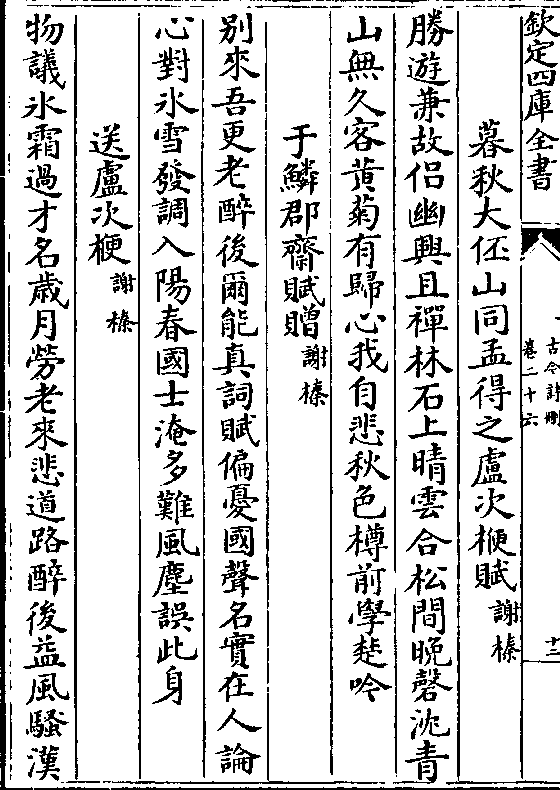 欽定四庫全書
古今詩刪
卷二十六
十三
暮秋大伾山同孟得之盧次楩賦 謝榛
勝遊兼故侣幽興且禪林石上晴雲合松間晚磬沈青
山無久客黄菊有歸心我自悲秋色樽前學楚吟
于鱗郡齋賦贈 謝榛
别來吾更老醉後爾能真詞賦偏憂國聲名實在人論
心對氷雪發調入陽春國士淹多難風塵誤此身
送盧次楩 謝榛
物議氷霜過才名歲月勞老來悲道路醉後益風騷漢